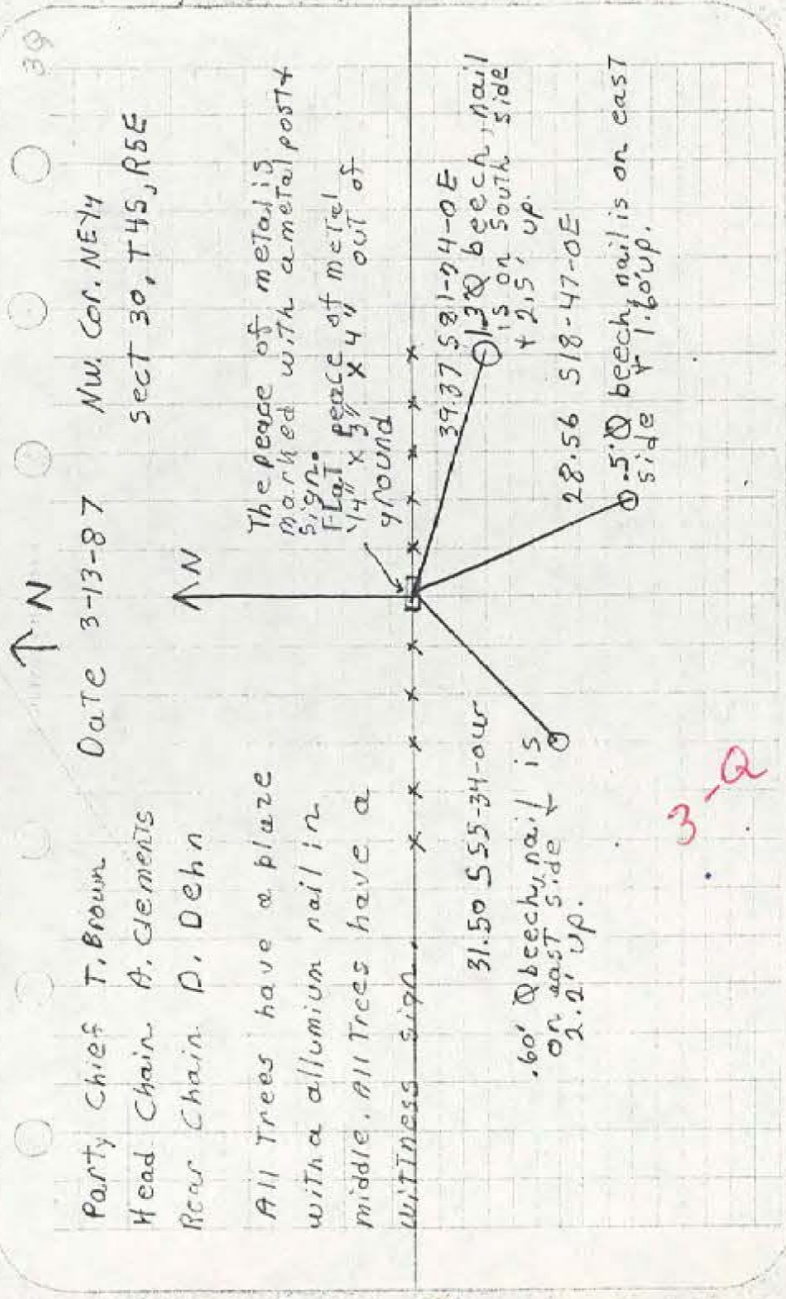 3Q
↑ N
Party Chief T. Brown
Head Chain A. Clements
Rear Chain D. Dehn
Date 3-13-87
NW. Cor. NE1/4
Sect 30, T4S, R5E
↑ N
All Trees have a blaze
with a allumium nail in
middle. All Trees have a
wittness sign.
The peace of metal is
marked with a metal post &
sign.
Flat peace of metal
1/4" x 3" x 4" out of
ground
39.37 S81-04-0E
1.3' Ø beech, nail
is on south side
+ 2.5' up.
28.56 S18-47-0E
.5' Ø beech, nail is on east
side + 1.60' up.
31.50 S55-34-0W
.60' Ø beech, nail is
on east side +
2.2' up.
3-Q